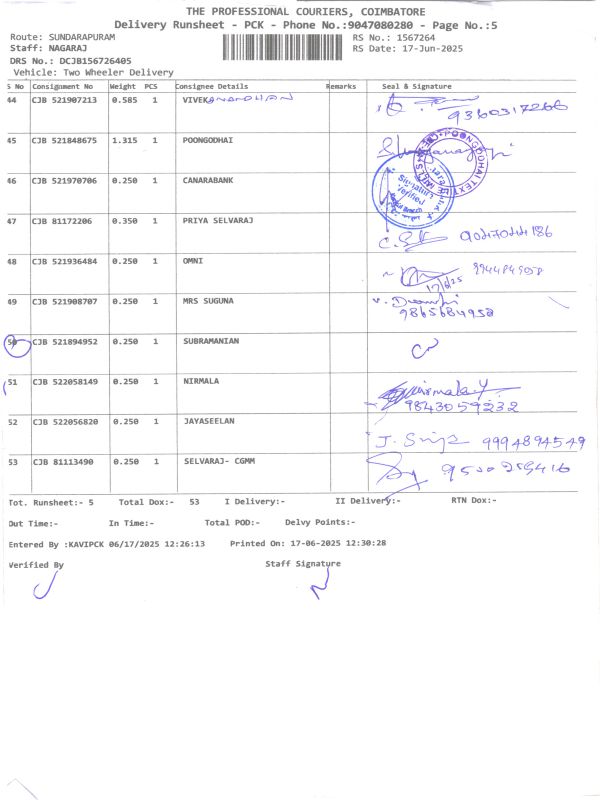 THE PROFESSIONAL COURIERS, COIMBATORE
Delivery Runsheet - PCK - Phone No.:9047080280 - Page No.:5
Route: SUNDARAPURAM RS No.: 1567264
Staff: NAGARAJ RS Date: 17-Jun-2025
DRS No.: DCJB156726405
Vehicle: Two Wheeler Delivery
S No Consignment No Weight PCS Consignee Details Remarks Seal & Signature
44 CJB 521907213 0.585 1 VIVEKANANDHAN 9360317266
45 CJB 521848675 1.315 1 POONGODHAI
46 CJB 521970706 0.250 1 CANARABANK
47 CJB 81172206 0.350 1 PRIYA SELVARAJ 9047044186
48 CJB 521936484 0.250 1 OMNI 9944849058
17/6/25
49 CJB 521908707 0.250 1 MRS SUGUNA
9865684958
50 CJB 521894952 0.250 1 SUBRAMANIAN
51 CJB 522058149 0.250 1 NIRMALA
9843059232
52 CJB 522056820 0.250 1 JAYASEELAN 9994894549
53 CJB 81113490 0.250 1 SELVARAJ- CGMM
Tot. Runsheet:- 5 Total Dox:- 53 I Delivery:- II Delivery:- RTN Dox:-
Out Time:- In Time:- Total POD:- Delvy Points:-
Entered By :KAVIPCK 06/17/2025 12:26:13 Printed On: 17-06-2025 12:30:28
Verified By Staff Signature